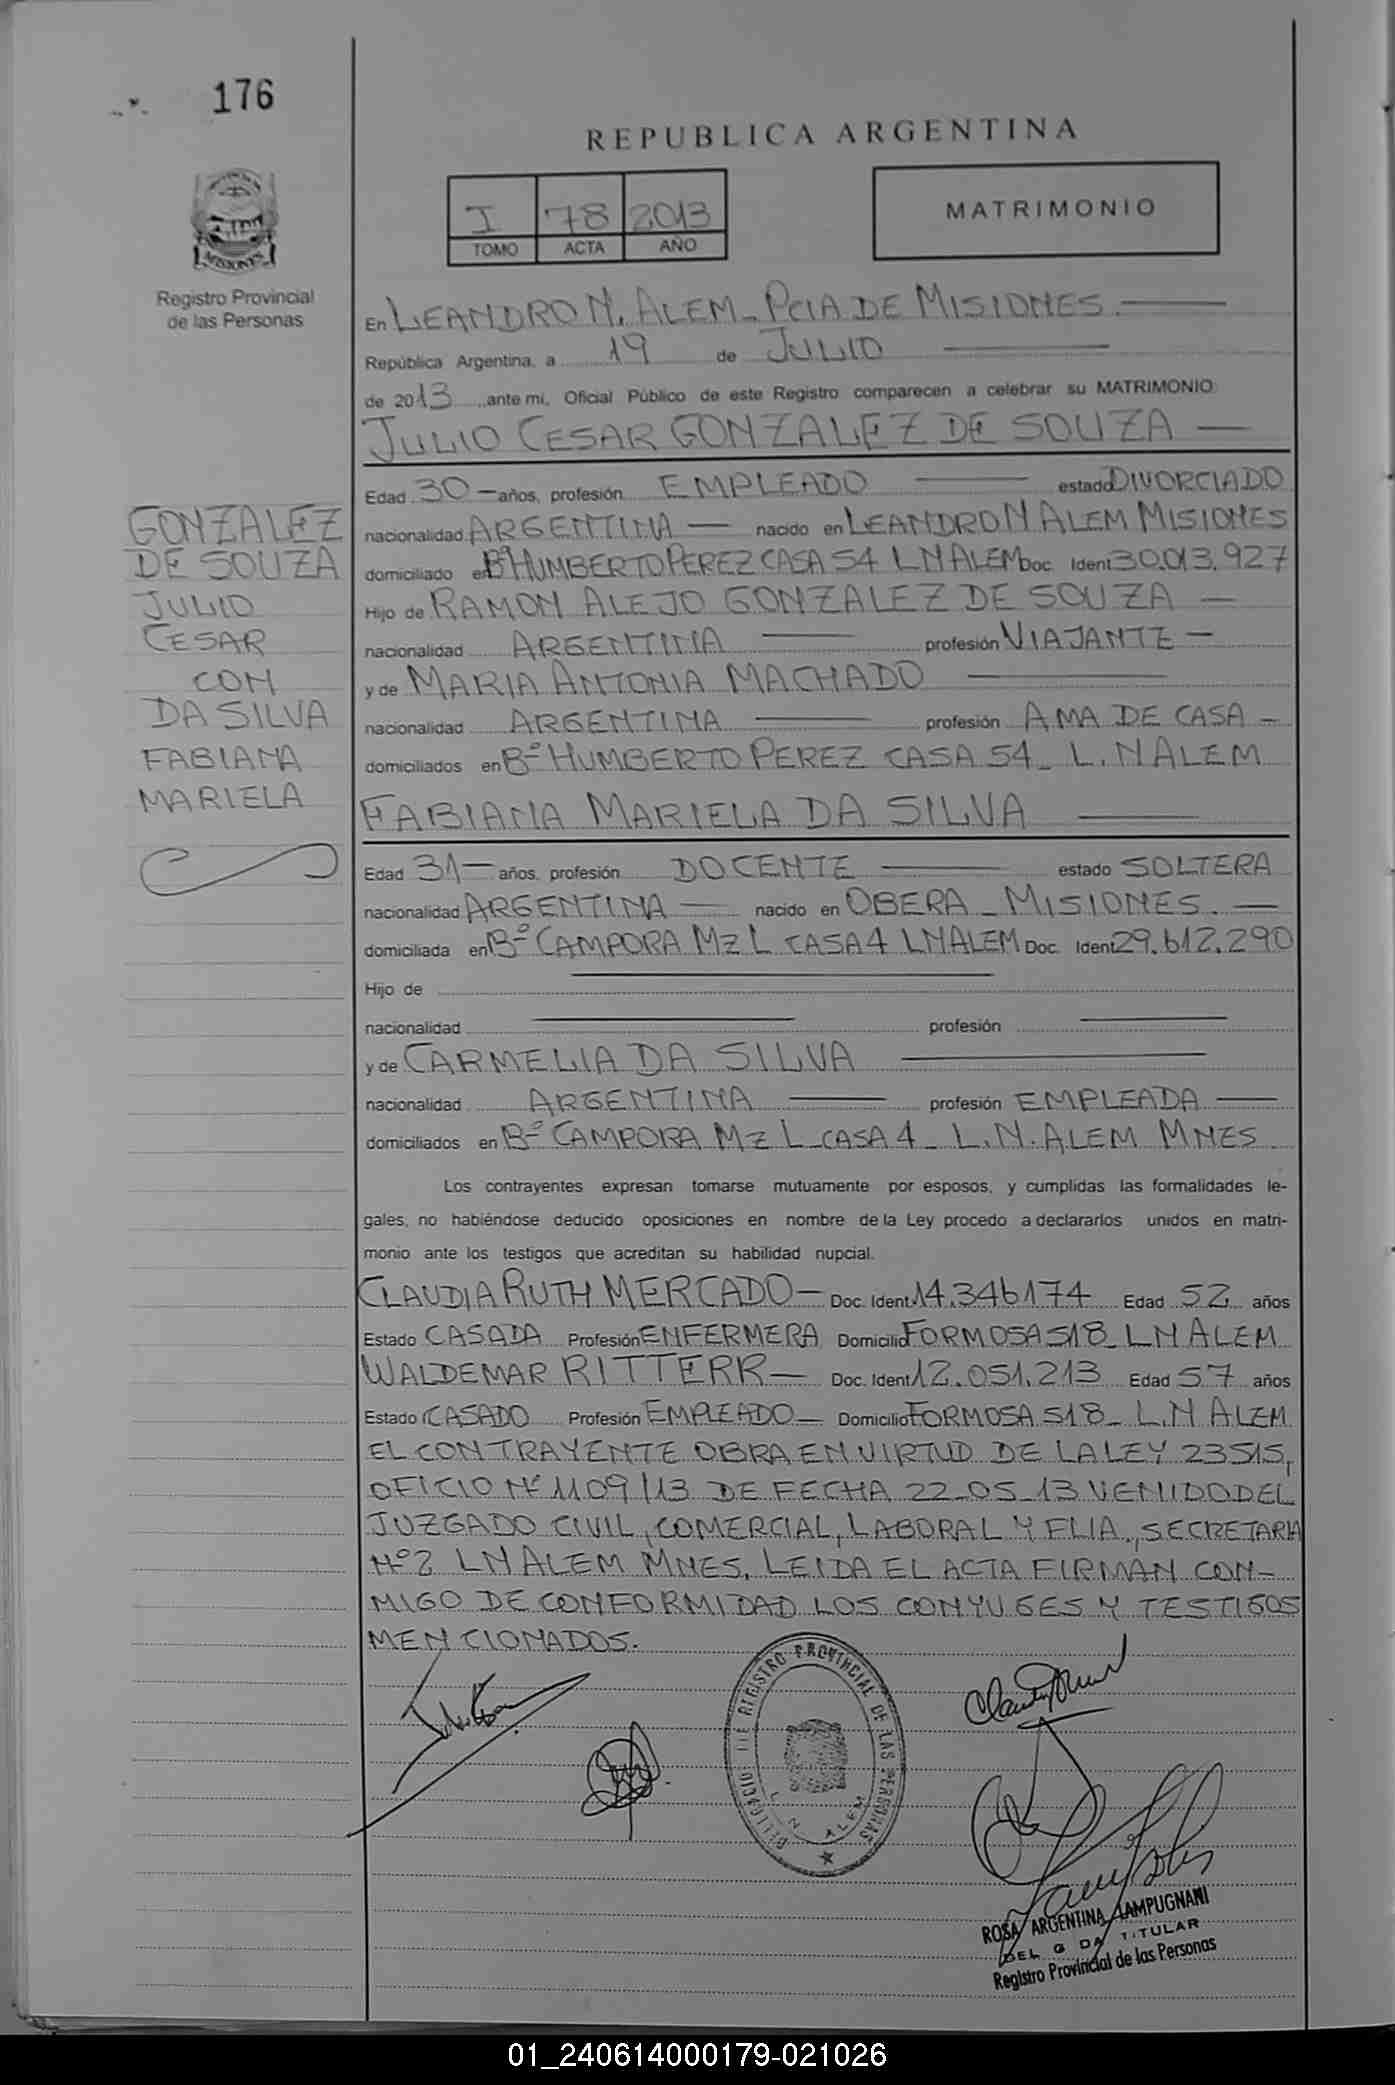 176
REPUBLICA ARGENTINA
I 78 2013
TOMO ACTA AÑO
MATRIMONIO
MISIONES
Registro Provincial
de las Personas
En LEANDRO N. ALEM - PCIA DE MISIONES.
República Argentina, a 19 de JULIO
de 2013 ante mi, Oficial Público de este Registro comparecen a celebrar su MATRIMONIO
JULIO CESAR GONZALEZ DE SOUZA
Edad 30 años, profesión EMPLEADO estado DIVORCIADO
nacionalidad ARGENTINA nacido en LEANDRO N ALEM MISIONES
domiciliado en Bº HUMBERTO PEREZ CASA 54 L N ALEM Doc. Ident 30.013.927
Hijo de RAMON ALEJO GONZALEZ DE SOUZA
nacionalidad ARGENTINA profesión VIAJANTE
y de MARIA ANTONIA MACHADO
nacionalidad ARGENTINA profesión AMA DE CASA
domiciliados en Bº HUMBERTO PEREZ CASA 54 - L. N ALEM
FABIANA MARIELA DA SILVA
Edad 31 años, profesión DOCENTE estado SOLTERA
nacionalidad ARGENTINA nacido en OBERA - MISIONES.
domiciliada en Bº CAMPORA MZ L CASA 4 L N ALEM Doc. Ident 29.612.290
Hijo de
nacionalidad profesión
y de CARMELIA DA SILVA
nacionalidad ARGENTINA profesión EMPLEADA
domiciliados en Bº CAMPORA MZ L - CASA 4 - L. N. ALEM MNES
GONZALEZ
DE SOUZA
JULIO
CESAR
CON
DA SILVA
FABIANA
MARIELA
Los contrayentes expresan tomarse mutuamente por esposos, y cumplidas las formalidades le-
gales, no habiéndose deducido oposiciones en nombre de la Ley procedo a declararlos unidos en matri-
monio ante los testigos que acreditan su habilidad nupcial.
CLAUDIA RUTH MERCADO - Doc. Ident. 14.346174 Edad 52 años
Estado CASADA Profesión ENFERMERA Domicilio FORMOSA 518 - L N ALEM
WALDEMAR RITTERR - Doc. Ident 12.051.213 Edad 57 años
Estado CASADO Profesión EMPLEADO - Domicilio FORMOSA 518 - L. N ALEM
EL CONTRAYENTE OBRA EN VIRTUD DE LA LEY 23515,
OFICIO Nº 1109/13 DE FECHA 22-05-13 VENIDO DEL
JUZGADO CIVIL, COMERCIAL, LABORAL Y FLIA., SECRETARIA
Nº 2 L N ALEM MNES. LEIDA EL ACTA FIRMAN CON-
MIGO DE CONFORMIDAD LOS CONYUGES Y TESTIGOS
MENCIONADOS.
REGISTRO PROVINCIAL DE LAS PERSONAS
L N ALEM
ROSA ARGENTINA LAMPUGNANI
TITULAR
Registro Provincial de las Personas
01_240614000179-021026